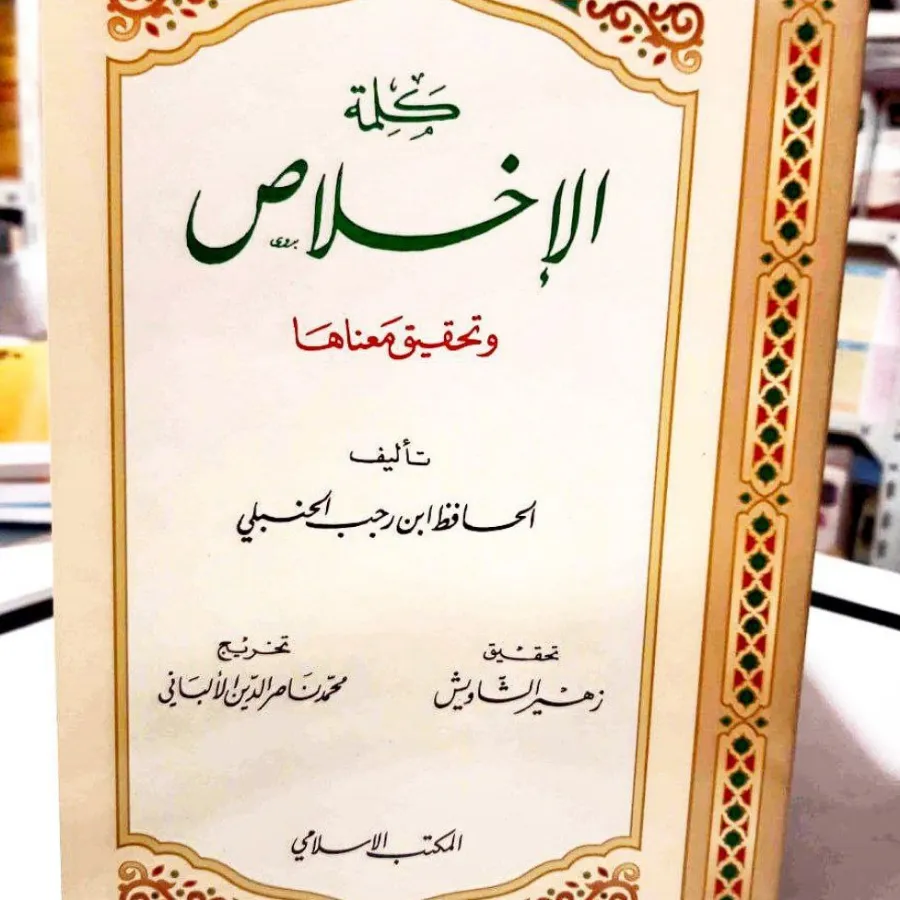 كَلِمَة
الإخلاص
بروي
وتحقيق مَعناهَا
تأليف
الحافظ ابن رجب الحنبلي
تحقيق
زهير الشّاويش
تخريج
محمّد ناصر الدين الألباني
المكتب الاسلامي